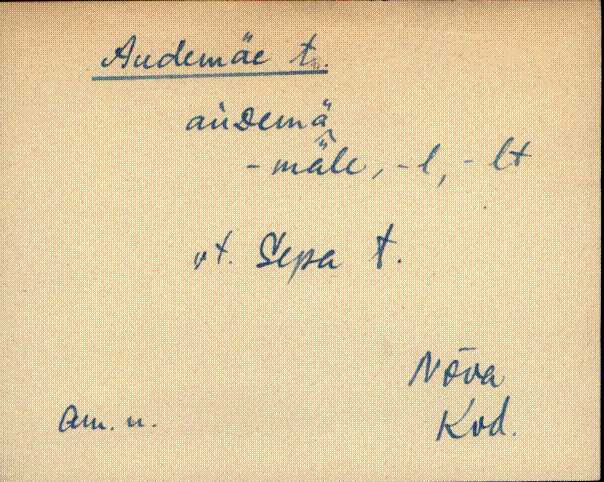 Audemäe t.
au̇Demä
-mäle, -l, -lt
vt. Sepa t.
Nõva
am. n.
Kod.